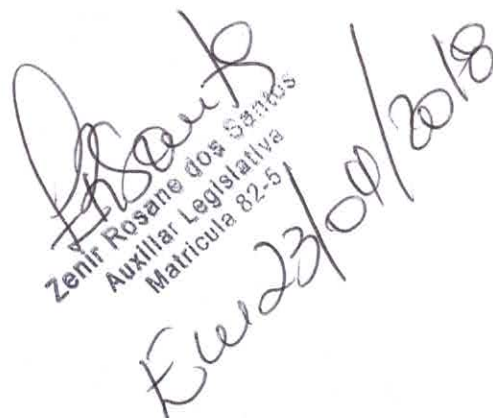 Zenir Rosane dos Santos
Auxiliar Legislativa
Matricula 82-5
Em 23/04/2018